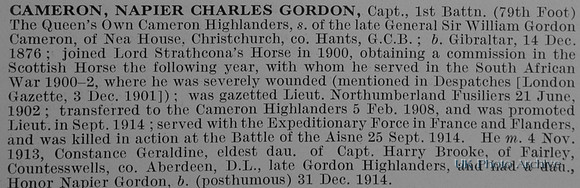 CAMERON, NAPIER CHARLES GORDON, Capt., 1st Battn. (79th Foot)
The Queen's Own Cameron Highlanders, s. of the late General Sir William Gordon
Cameron, of Nea House, Christchurch, co. Hants, G.C.B.; b. Gibraltar, 14 Dec.
1876; joined Lord Strathcona's Horse in 1900, obtaining a commission in the
Scottish Horse the following year, with whom he served in the South African
War 1900-2, where he was severely wounded (mentioned in Despatches [London
Gazette, 3 Dec. 1901]); was gazetted Lieut. Northumberland Fusiliers 21 June,
1902; transferred to the Cameron Highlanders 5 Feb. 1908, and was promoted
Lieut. in Sept. 1914; served with the Expeditionary Force in France and Flanders,
and was killed in action at the Battle of the Aisne 25 Sept. 1914. He m. 4 Nov.
1913, Constance Geraldine, eldest dau. of Capt. Harry Brooke, of Fairley,
Countesswells, co. Aberdeen, D.L., late Gordon Highlanders, and had a dau.,
Honor Napier Gordon, b. (posthumous) 31 Dec. 1914.
UK Photo Archive